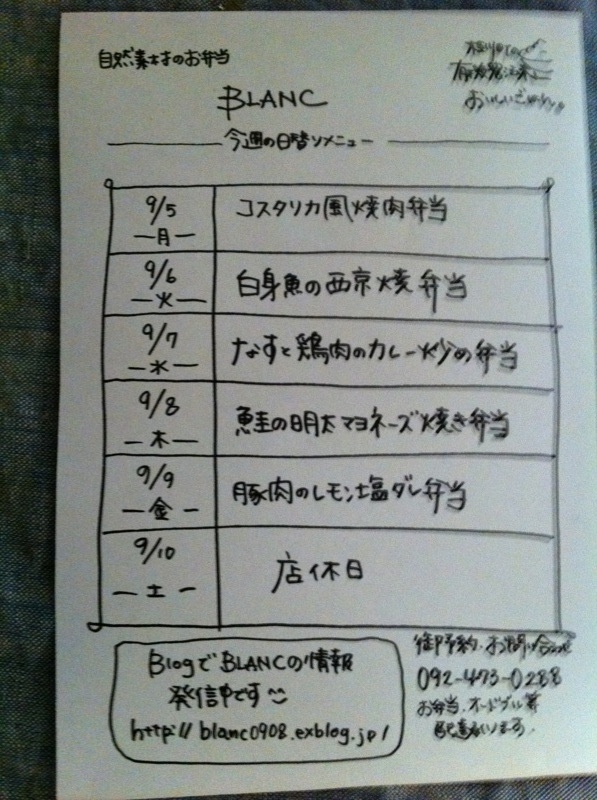 自然素材のお弁当
BLANC
今週の日替りメニュー
9/5
月
コスタリカ風焼肉弁当
9/6
火
白身魚の西京焼弁当
9/7
水
なすと鶏肉のカレー炒め弁当
9/8
木
鮭の明太マヨネーズ焼き弁当
9/9
金
豚肉のレモン塩ダレ弁当
9/10
土
店休日
BlogでBLANCの情報
発信中です
http://blanc0908.exblog.jp/
御予約・お問い合わせ
092-473-0288
お弁当、オードブル等
配達承ります。